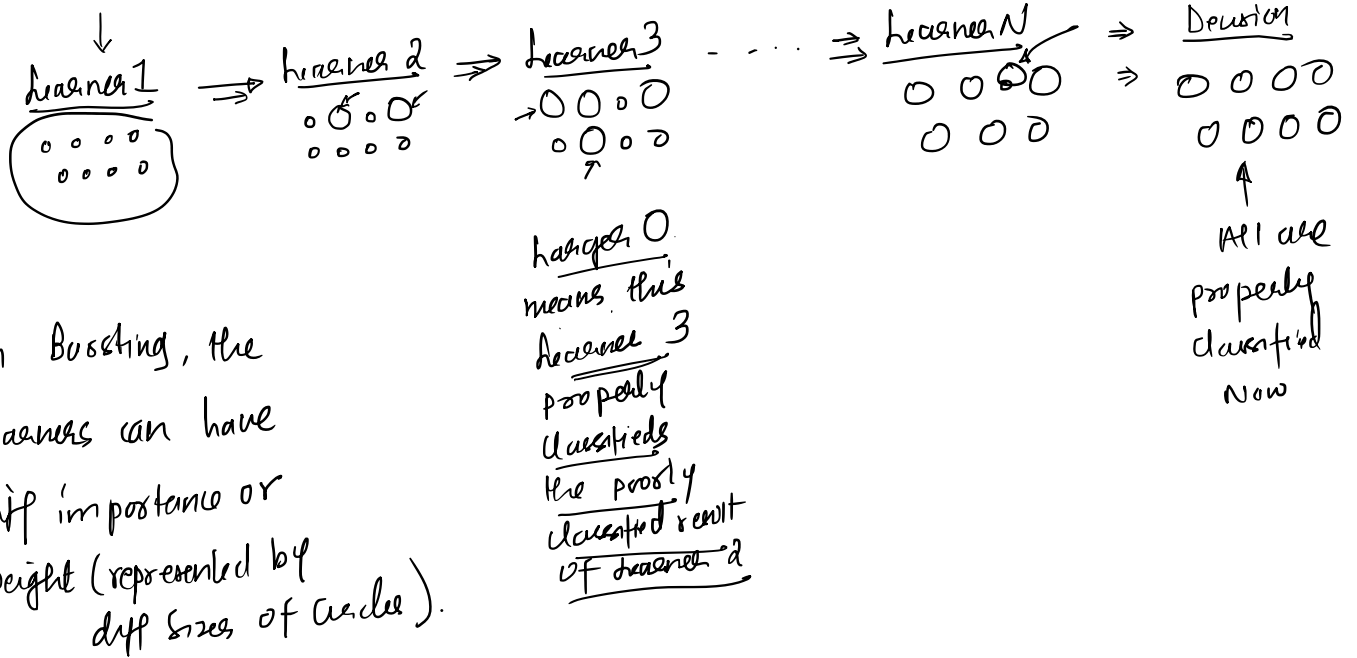 Learner 1
Learner 2
Learner 3
- - . . .
Learner N
Decision
Larger O
means this
Learner 3
properly
classifieds
the poorly
classified result
of Learner 2
All are
properly
classified
Now
n Boosting, the
earners can have
iff importance or
weight (represented by
diff sizes of circles).